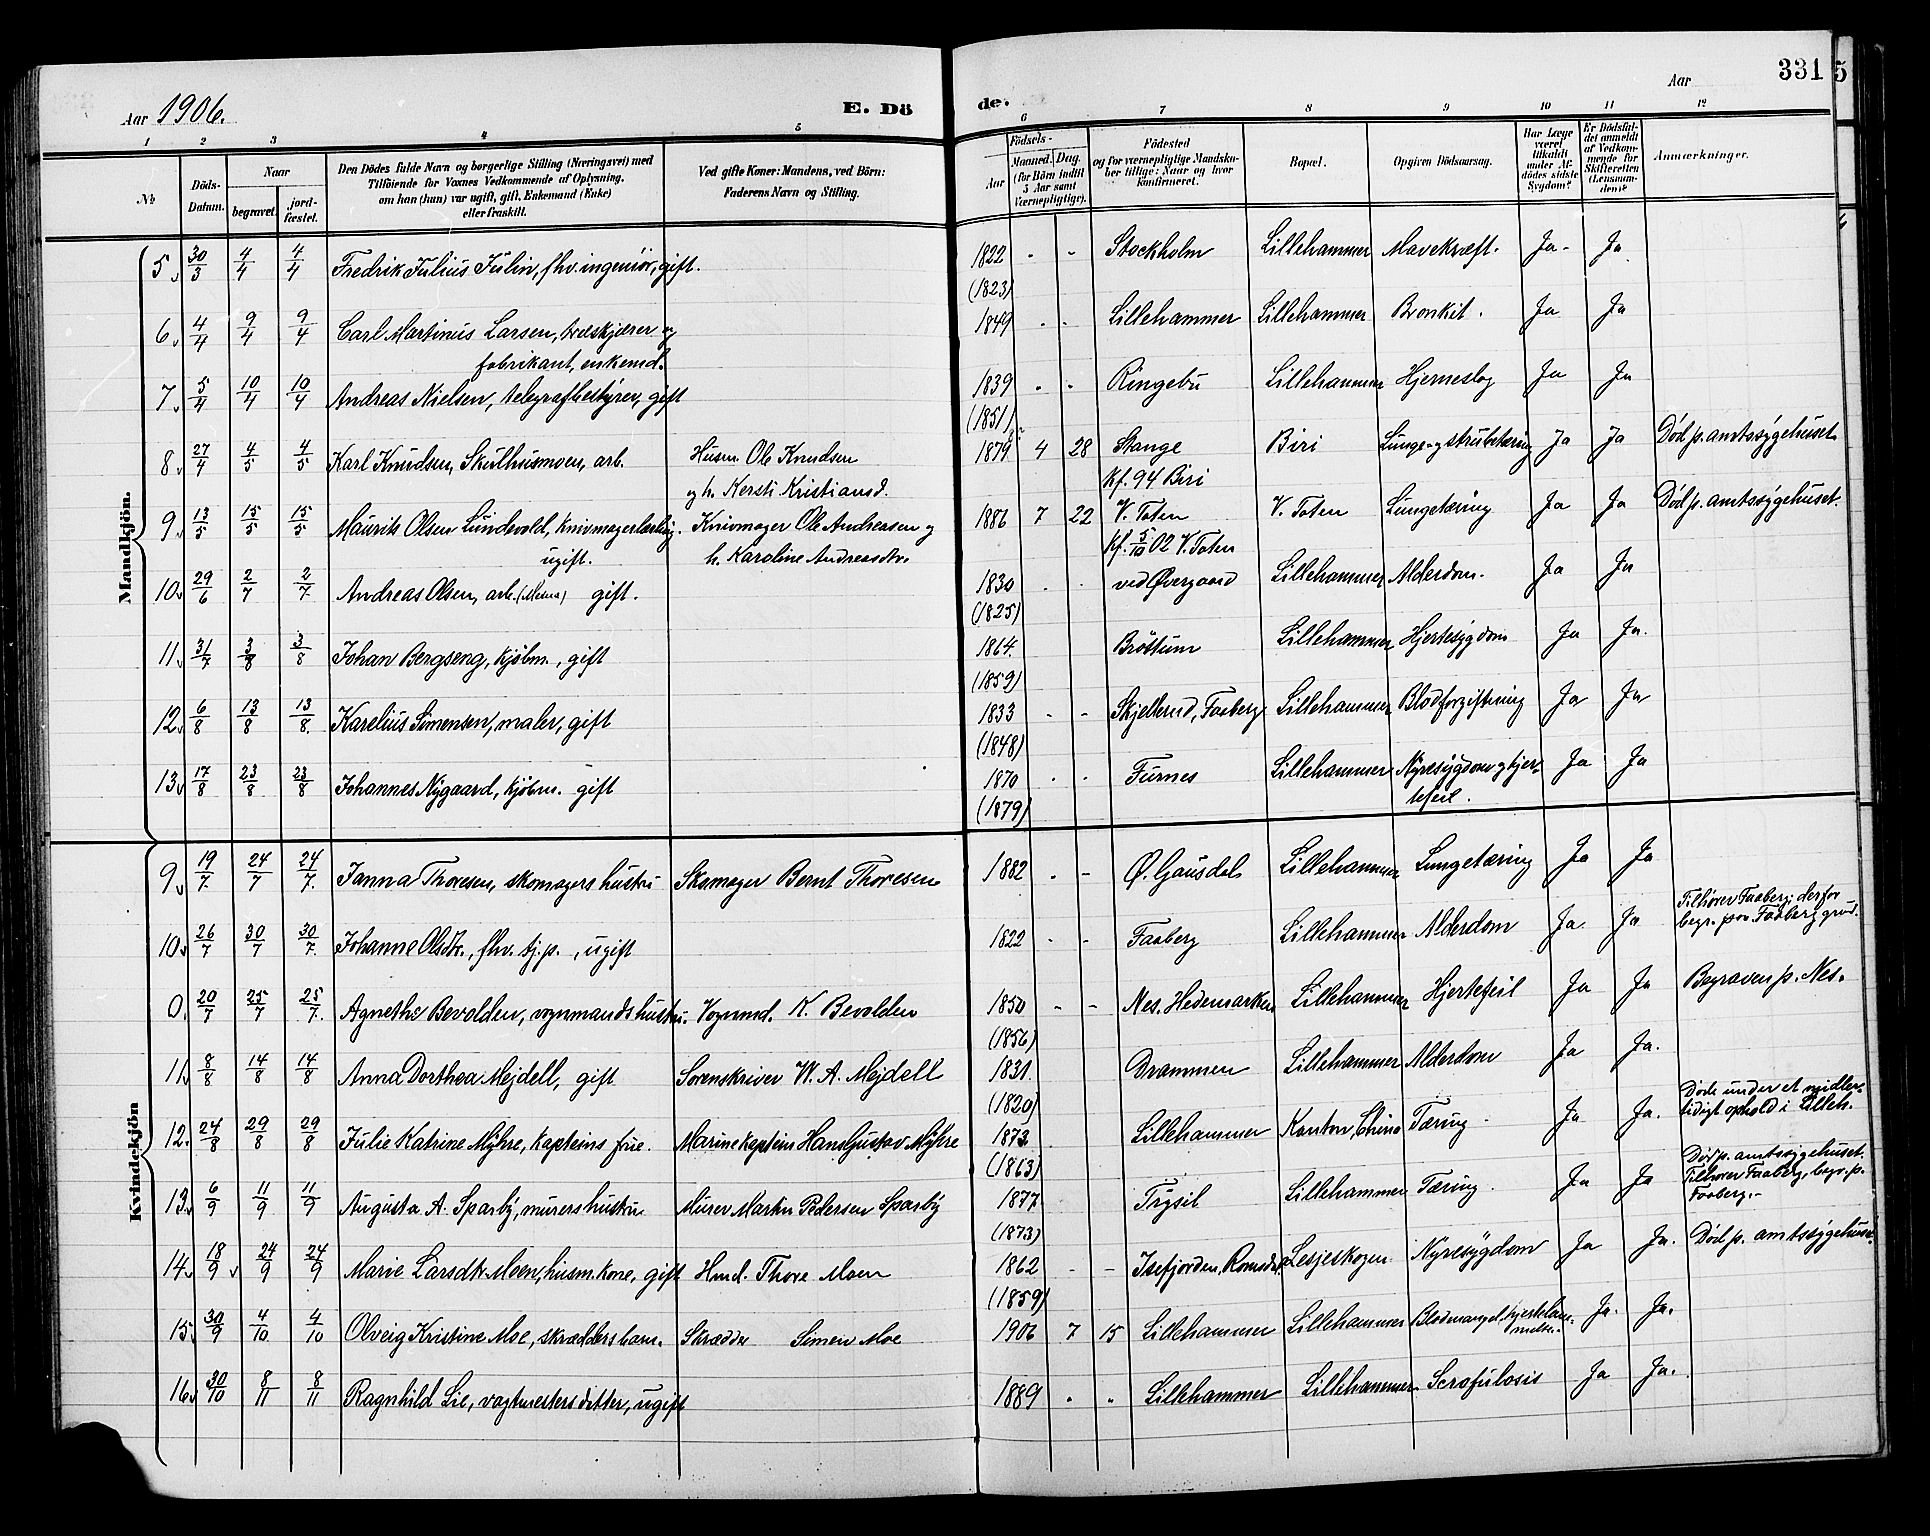 Aar 1906.
E. Dö
de.
Aar
331
5
1 2 3 4 5 6 7 8 9 10 11 12
No
Döds-Datum.
Naar
begravet.
jordfæstet.
Den Dödes fulde Navn og borgerlige Stilling (Næringsvei) med
Tilföiende for Voxnes Vedkommende af Oplysning,
om han (hun) var ugift, gift, Enkemand (Enke)
eller fraskilt.
Ved gifte Koner: Mandens, ved Börn:
Faderens Navn og Stilling.
Födsels-
Aar
Maaned. Dag.
(for Börn indtil
5 Aar samt
Værnepligtige).
Födested
og for værnepligtige Mandskaber tillige: Naar og hvor
konfirmeret.
Bopæl.
Opgiven Dödsaarsag.
Har Læge
været
tilkaldt
under Afdödes sidste
Sygdom?
Er Dödsfaldet anmeldt
af Vedkommende for
Skifteretten
(Lensmanden)?
Anmærkninger.
Mandkjön.
5 30/3 4/4 4/4 Fredrik Julius Julin, fhv. ingeniör, gift. 1822 - - Stockholm Lillehammer Mavekræft. Ja - Ja
(1823)
6 4/4 9/4 9/4 Carl Martinus Larsen, træskjærer og 1849 - - Lillehammer Lillehammer Bronkit. Ja Ja
fabrikant, enkemd.
7 5/4 10/4 10/4 Andreas Nielsen, telegrafbestyrer, gift 1839 - - Ringebu Lillehammer Hjerneslag Ja Ja
(1851)
8 27/4 4/5 4/5 Karl Knudsen, Skulhusmoen, arb. Husm. Ole Knudsen 1879 4 28 Stange Biri Lunge- og strubetæring Ja Ja Död p. amtssygehuset
og h. Kersti Kristiansd. Kf. 94 Biri
9 13/5 15/5 15/5 Maurits Olsen Lundevold, knivmagerlærling. Knivmager Ole Andreasen og 1886 7 22 V. Toten V. Toten Lungetæring Ja Ja Död p. amtssygehuset.
ugift. h. Karoline Andreasdtr. Kf. 5/10 02 V. Toten
10 29/6 2/7 2/7 Andreas Olsen, arb. (Mesna) gift. 1830 - - ved Øvergaard Lillehammer Alderdom. Ja Ja
(1825)
11 31/7 3/8 3/8 Johan Bergseng, kjöbm., gift 1864 Bröttum Lillehammer Hjertesygdom Ja Ja.
(1859)
12 6/8 13/8 13/8. Karelius Simensen, maler, gift 1833 - - Skjellerud, Faaberg Lillehammer Blodforgiftning Ja Ja
(1848)
13 17/8 23/8 23/8 Johannes Nygaard, kjöbm. gift 1870 - - Furnes Lillehammer Nyresygdom og hjer-
tefeil.
(1879)
Kvindekjön
9 19/7. 24/7 24/7. Janna Thoresen, skomagers hustru Skomager Bernt Thoresen 1882 - - Ø. Gausdal Lillehammer Lungetæring Ja Ja
10 26/7 30/7 30/7. Johanne Olsdtr., fhv. tj.p., ugift 1822 - - Faaberg Lillehammer Alderdom Ja. Ja Tilhører Faaberg; derfor
begr. paa Faaberg grvd.
0. 20/7 25/7 25/7. Agnethe Bevolden, vognmands hustru. Vognmd. K. Bevolden 1850 - - Nes. Hedemarken Lillehammer Hjertefeil Ja Ja Begraven p. Nes.
(1856)
11 8/8 14/8 14/8 Anna Dorthea Mejdell, gift Sorenskriver W. A. Mejdell 1831. Drammen Lillehammer Alderdom Ja Ja.
(1820)
12. 24/8 29/8 29/8 Julie Katrine Myhre, kapteins frue. Marinekaptein Hans Gustav Myhre 1872 Lillehammer Kanton, China Tæring. Ja Ja. Döde under et midler-
tidigt ophold i Lilleh.
(1863)
13 6/9 11/9 11/9 Augusta A. Sparby, murers hustru Murer Martin Pedersen Sparby 1877 Trysil Lillehammer Tæring. Ja Ja Död p. amtssygehuset.
Tilhører Faaberg, begr. p.
Faaberg.-
(1873)
14 18/9 24/9 24/9 Marie Larsdtr. Moen, husm.kone, gift Hmd. Thore Moen 1862 - - Isefjorden, Romsdal Lesjeskogen Nyresygdom Ja Ja. Död p. amtssygehuset.
(1859)
15 30/9 4/10 4/10 Olveig Kristine Moe, skrædders barn. Skrædder Simen Moe 1906 7 15 Lillehammer Lillehammer Blodmangel, hjertelam-
melse. Ja. Ja.
16 30/10 8/11 8/11 Ragnhild Lie, vagtmesters datter, ugift 1889 - - Lillehammer Lillehammer Scrofulosis Ja Ja.